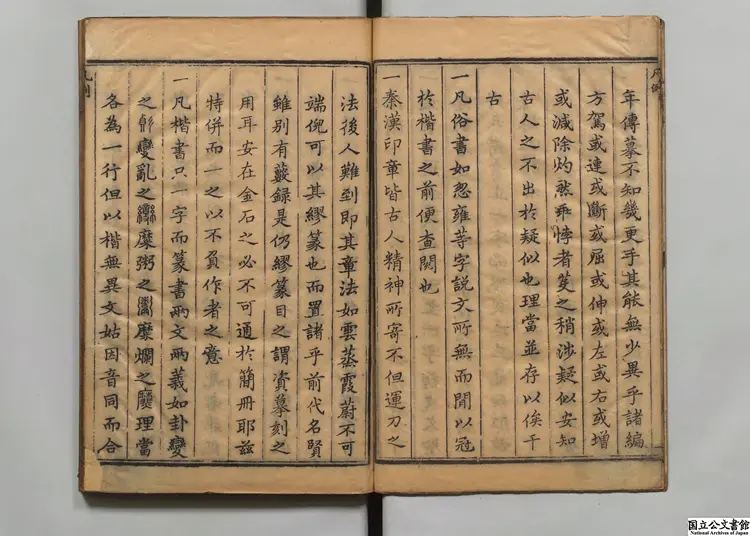 凡例
年傳摹不知幾更乎其能無少異乎諸編
方駕或連或斷或屈或伸或左或右或增
或減除灼然乖悖者芟之稍涉疑似安知
古人之不出於疑似也理當並存以俟千
古
一凡俗書如忍雍等字說文所無而間以冠
於楷書之前便查閱也
一秦漢印章皆古人精神所寄不但運刀之
法後人難到即其章法如雲蒸霞蔚不可
端倪可以其繆篆也而置諸乎前代名賢
雖別有藏錄是仍繆篆目之謂資摹刻之
用耳安在金石之必不可通於簡冊耶茲
特併而一之以不負作者之意
一凡楷書只一字而篆書兩文兩義如卦變
之變亂之糜粥之糜爛之理當
各為一行但以楷無異文姑因音同而合
凡例
国立公文書館
National Archives of Japan